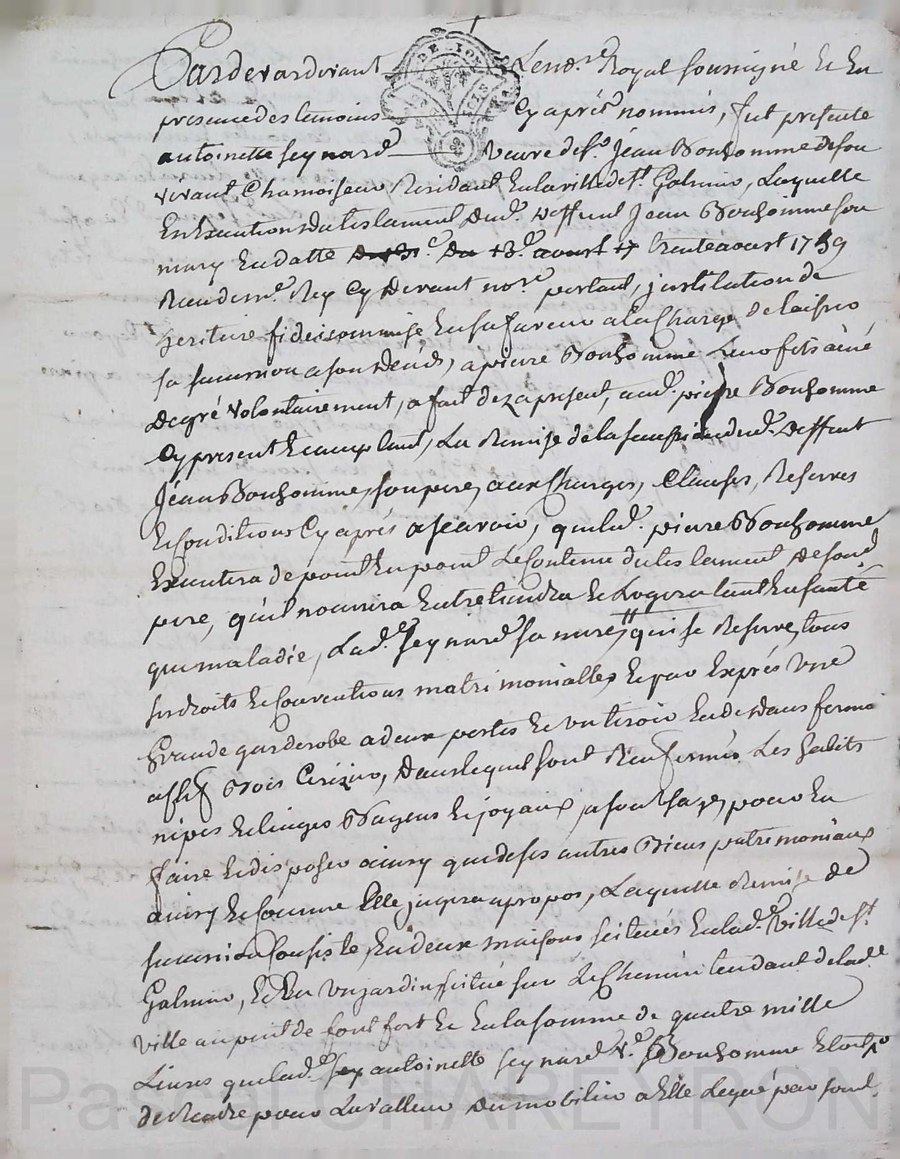 Pardevardevant Le no.re Royal soussigné Et En
presence des temoins Cy aprés nommés, fut presente
antoinette seynard veuve de f.s Jean Bonhomme de son
vivant Chamoiseur Residant En la ville de s.t Galmier, Laquelle
En Execution du testament dud. deffunt Jean Bonhomme son
mary En datte trente aoust 1759
Reçu de m.e Rey Cy devant no.re portant, justitution de
heritiere fideicommise En sa faveur a la Charge de laisser
sa succession a son deçéds, à pierre Bonhomme Leur fils ainé
de gré volontairement, a fait dez a present, aud. pierre Bonhomme
Cy present Et acceptant, La Remise de la succession dud. deffunt
Jean Bonhomme, son pere, aux Charges, Clauses, Reserves
Et Conditions Cy aprés a scavoir, que led. pierre Bonhomme
Executera de point En point Le Contenu du testament de sond.
pere, qu'il nourrira Entretiendra Et Logera tant En santé
que maladie, Lad.e seynard sa mere, qui se Reserve, tous
ses droits Et Conventions matrimonialles, Et par Exprés une
Grande garderobe a deux portes Et un tiroir En dedans fermé
a clef Bois Cerizier, dans lequel sont Renfermés Les habits
nipes Et linges Bagues Et joyaux a son usage, pour En
faire Et disposer ainsy que de ses autres Biens patrimoniaux
ainsy Et Comme Elle jugera apropos, Laquelle Remise de
succession Consiste, En deux maisons scituées En lad.e ville de s.t
Galmier, Et En un jardin scitué sur Le Chemin tendant de lad.e
ville au puit de font fort Et En la somme de quatre mille
Livres que lad.e antoinette seynard v.e Bonhomme
de Rendre pour La valleur du mobilier a Elle Legué par sond.
Pascal CHAREYRON